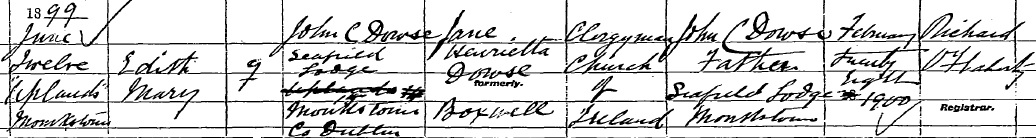 1899
June John C Dowse Jane Clergyman John C Dowse February Richard
Twelve Edith F Seafield Henrietta Church Father Twenty O'Flaherty
"Uplands" Mary Lodge Dowse of Seafield Lodge Eighth
Monkstown Monkstown formerly. Ireland Monkstown 1900 Registrar.
Co Dublin Boxwell